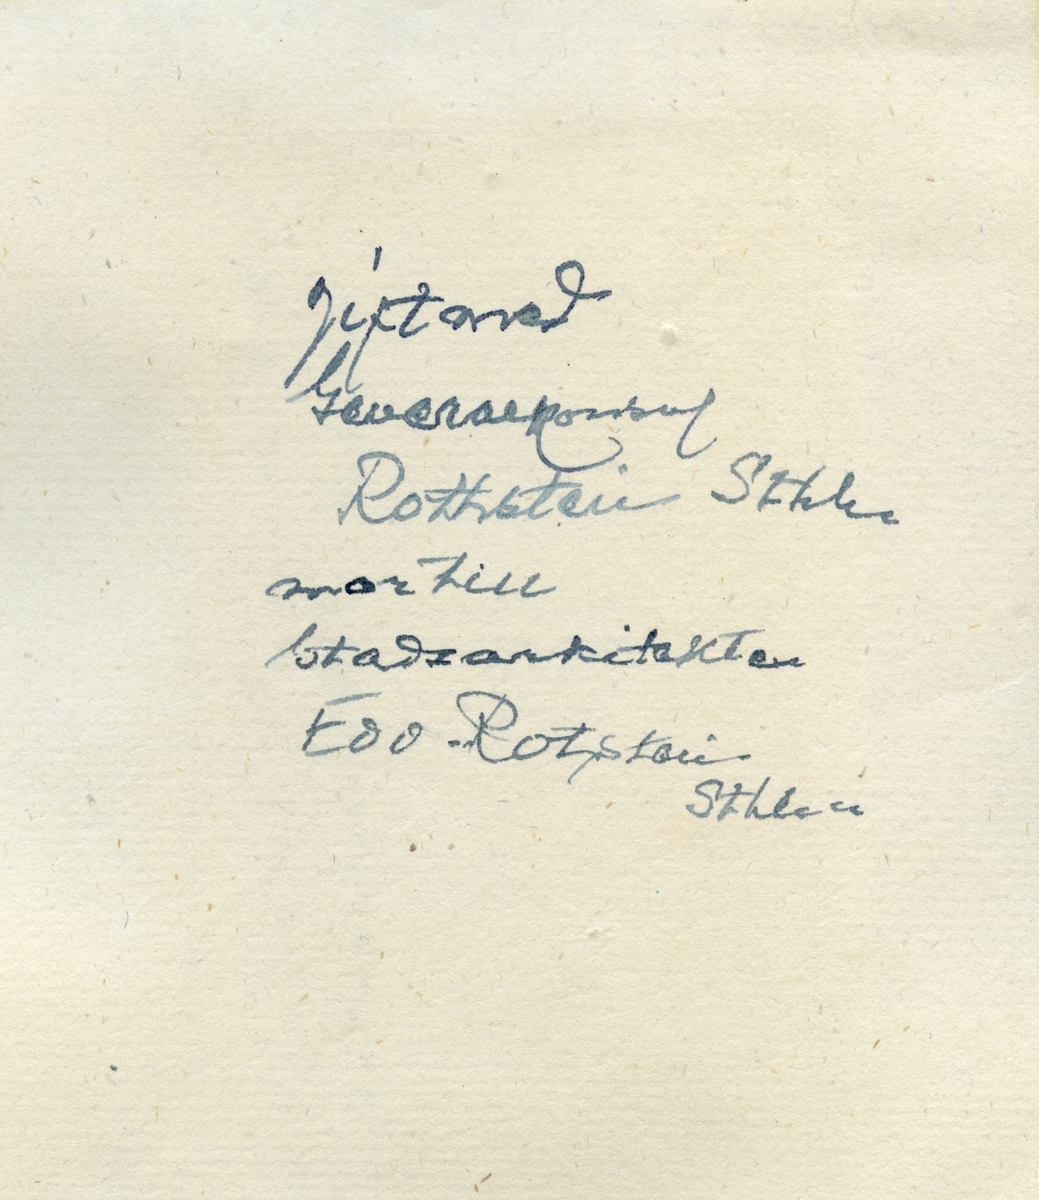 gift med
Generalkonsul
Rothstein Sthlm
mor till
Stadsarkitekten
Edv. Rotstein
Sthlm